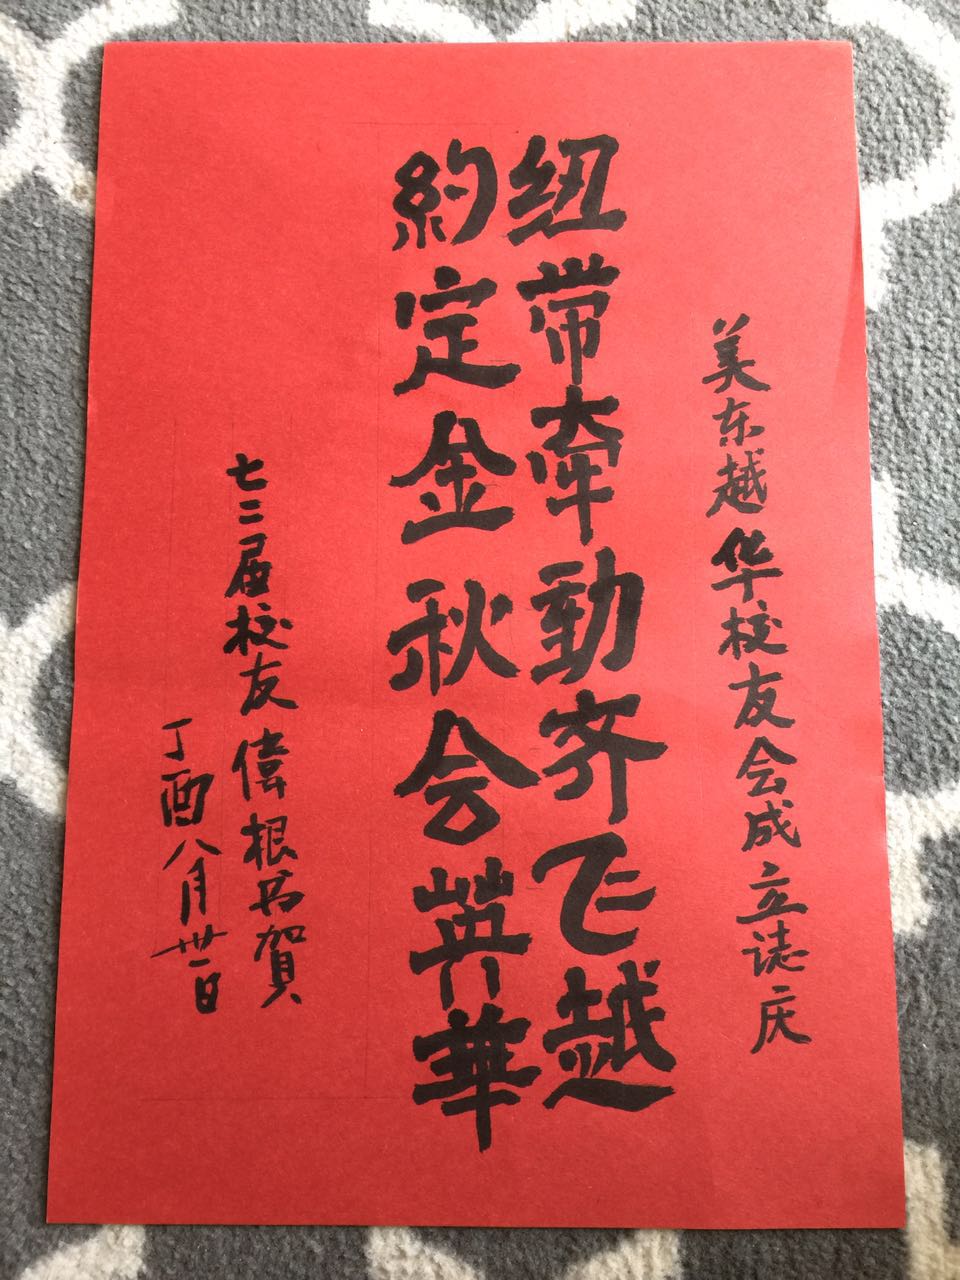 美东越华校友会成立誌庆
纽带牵動齐飞越
約定金秋会英華
七二届校友偉根书賀
丁酉八月卅一日